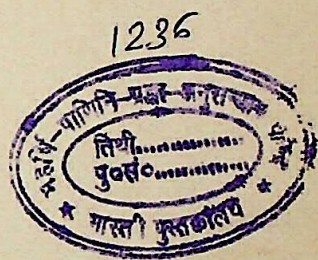 1236
महर्षि-पाणिनि-
तिथी............
पु०सं०............
★ भारती पुस्तकालय ★